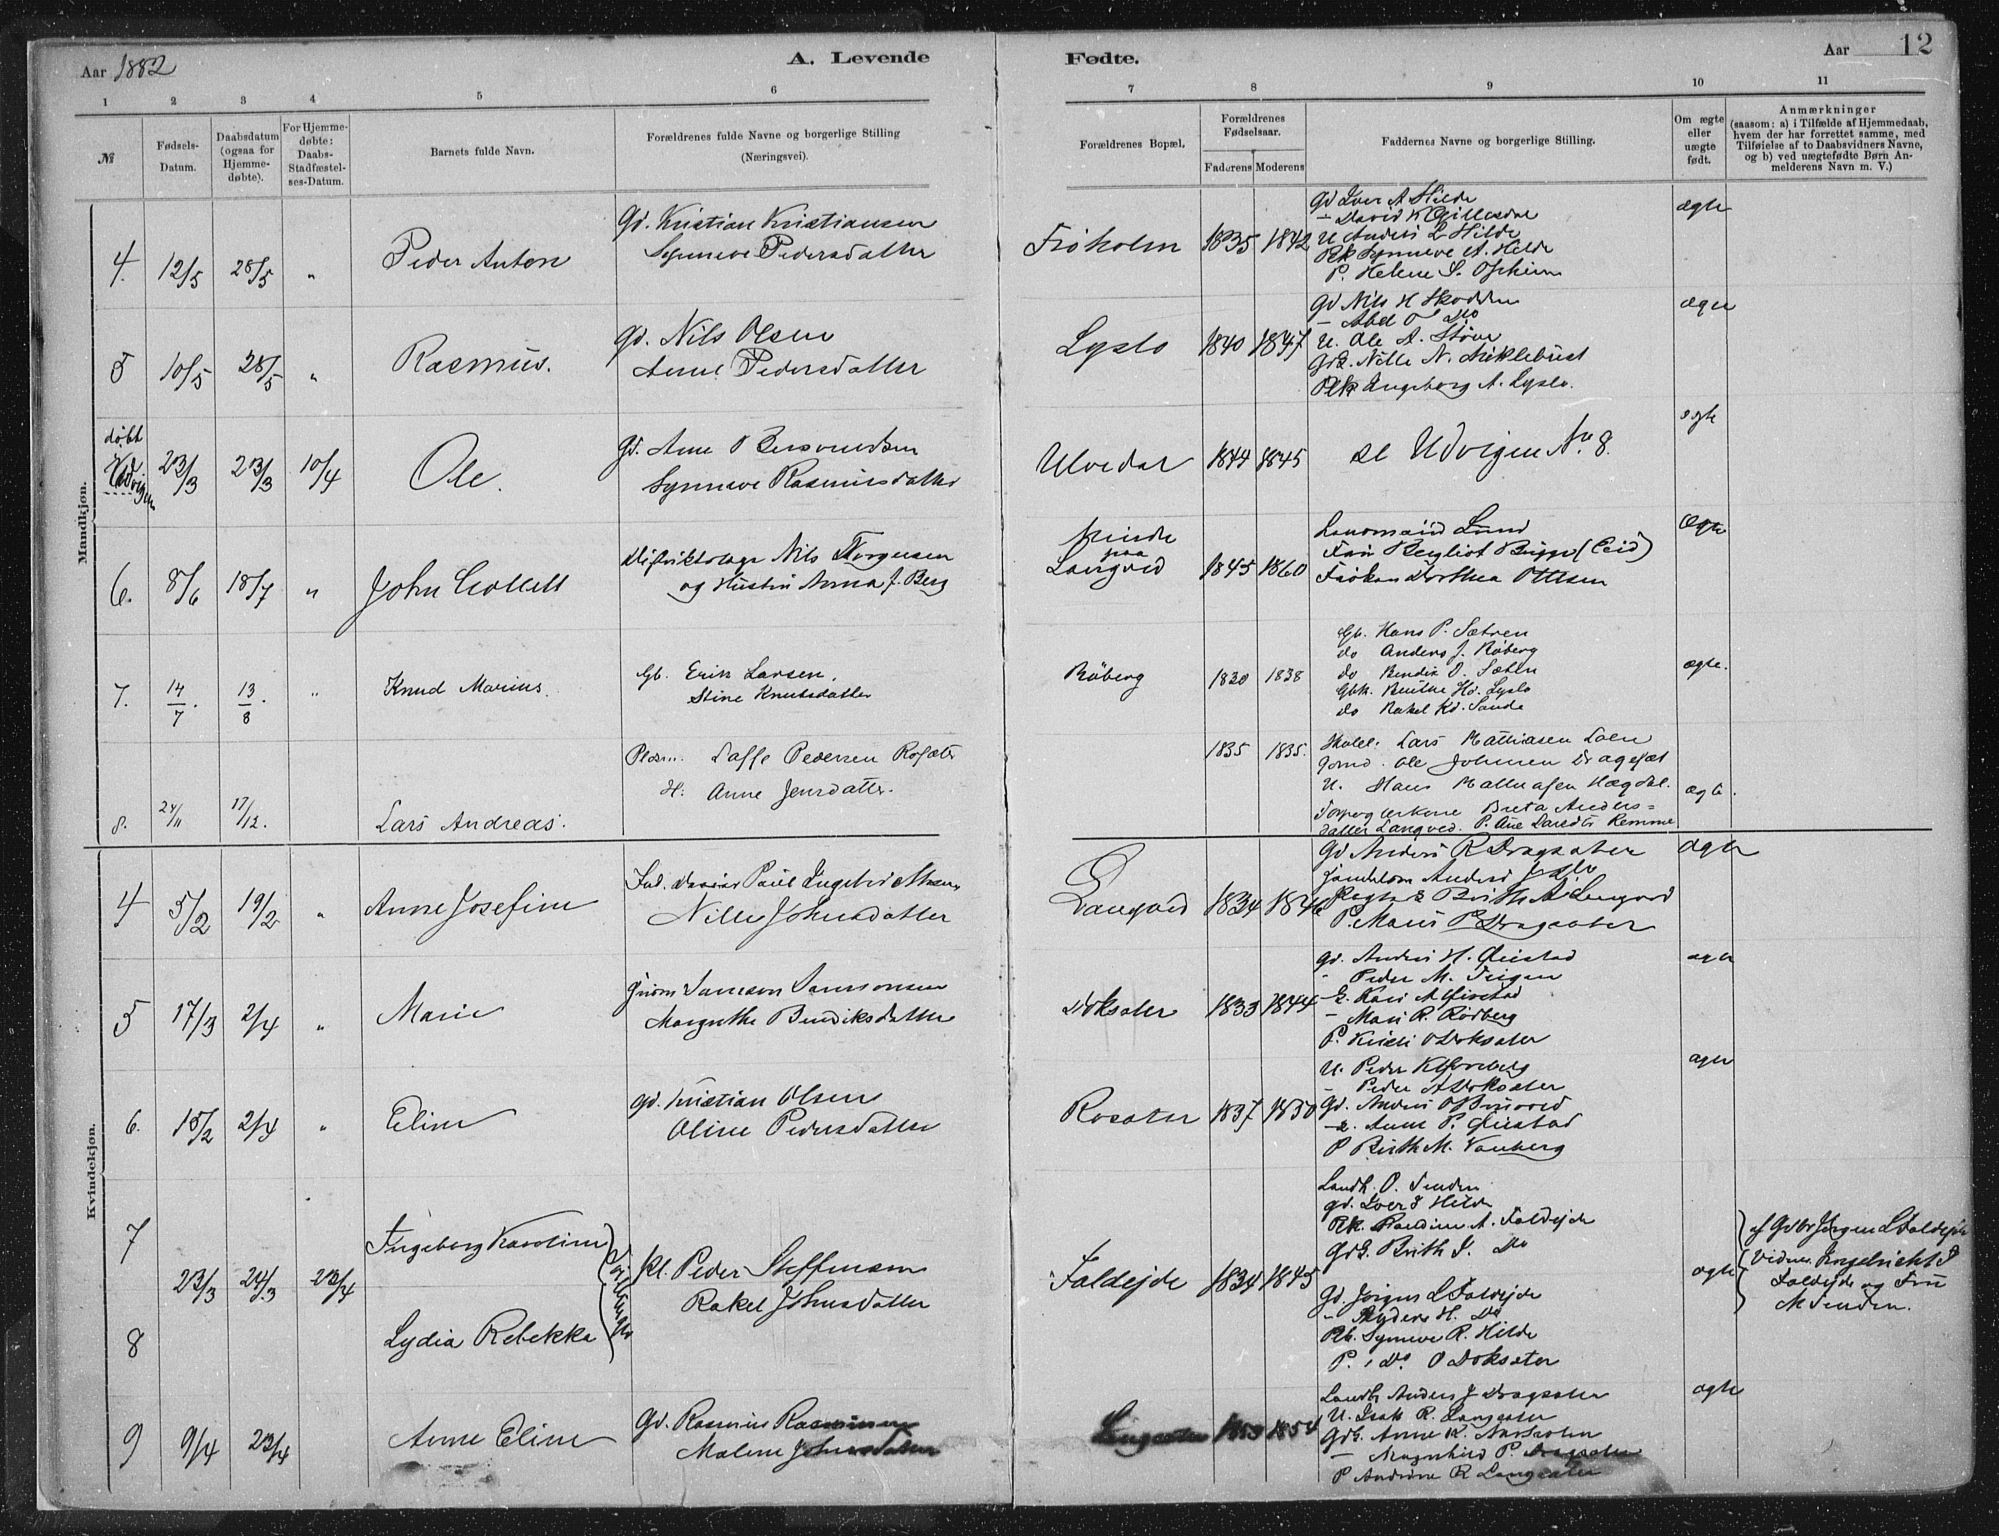 Aar 1882
A. Levende
Fødte.
Aar 12
1 2 3 4 5 6 7 8 9 10 11
№
Fødsels-
Datum.
Daabsdatum
(ogsaa for
Hjemme-
døbte).
For Hjemme-
døbte:
Daabs-
Stadfæstel-
ses-Datum.
Barnets fulde Navn.
Forældrenes fulde Navne og borgerlige Stilling
(Næringsvei).
Forældrenes Bopæl,
Forældrenes
Fødselsaar.
Faderens Moderens
Faddernes Navne og borgerlige Stilling.
Om ægte
eller
uægte
født.
Anmærkninger
(saasom: a) i Tilfælde af Hjemmedaab,
hvem der har forrettet samme, med
Tilføielse af to Daabsvidners Navne,
og b) ved uægtefødte Børn An-
melderens Navn m. V.)
Mandkjøn.
4. 12/5 28/5 " Peder Anton
Gd. Kristian Kristiansen
Synneve Pedersdatter
Frøholm 1835 1842
Gd Iver A Hilde
— David K Gjillesdal
U Anders L Hilde
Pk Synneve A. Hilde
P. Helene S. Opheim
ægte
5 10/5 28/5 " Rasmus.
Gd. Nils Olsen
Anne Pedersdatter
Lyslo 1840 1847
Gd Nils H Skodden
— Abel O Do
U. Ole A. Støve
GdE. Nille N. Miklebust
Pk Ingeborg A. Lyslo.
ægte
døbt
Udvigen 23/3 23/3 10/4 Ole.
Gd. Arne P Bersvendsen
Synneve Rasmusdatter
Ulvedal 1844 1845
se Udvigen No. 8.
ægte
6. 8/6 18/7 " John Collett
Distriktslæge Nils Jørgensen
og Hustru Anna J. Berg
Minde
paa
Langved 1845 1860
Lensmand Lund
Frøken Dorthea Ottesen
ægte
7. 14/7. 13/8. " Knud Marius.
Gb. Erik Larsen.
Stine Knutsdatter
Røberg 1830 1838
Gb. Hans P. Sætren
do Anders J. Røberg
do Bendix O. Sætren
Gbk. Hd. Lyslo
do Rakel Kd. Sande
ægte.
8. 24/11 17/12. Lars Andreas.
Plasm. Daffe Pedersen
H: Anne Jensdatter.
1835 1835.
Skolel. Lars Mathiasen Loen
Gmd. Ole Johnsen Dragesæt
U. Hans Hægdal.
Brita Anders=
datter Langved. P. Ane Larsdtr Remme
ægte.
Kvindekjøn.
4 5/2 19/2 " Anne Josefine
Ind. Paul Ingebrigtsen
Nille Johnsdatter
Langved 1834 1846
Gd Anders R Dragsæter
Anders
Brith A Langved
P. Mari P Dragsæter
ægte
5 17/3 2/4 " Marie
Samson Samsonsen
Margrethe Bendiksdatter
Doksæter 1833 1844
Gd. Anders H. Øiestad
- Peder M. Teigen
- E. Kari A Øiestad
— Mari R. Rødberg
P. Kristi O Doksæter
ægte
6. 15/2 2/4 " Eline
Gd. Kristian Olsen
Oline Pedersdatter
Rosæter 1837 1850
U. Peder K
- Peder A Doksæter
Gd. Anders O
—E. Anne P. Øiestad
P Brith M. Vanberg
ægte
7 Ingeborg Karoline
23/3 24/3 23/4
8 Lydia Rebekka
Tvillinger
Pl. Peder Steffensen
Rakel Johnsdatter
Faldejde 1834 1845
Landh. O. Tenden
Gd. Iver S Hilde
Pk. Pauline A. Faldejde
GdE. Brith S. Do
Gd. Jørgen L Faldejde
- H. Do
Pk. Synneve R. Hilde
P. Do O Doksæter
ægte
af Gdbr Jørgen L Faldejde
Vidner Engelbricht
Faldejde og Fru
M Tenden.
9 9/4 23/4 Anne Eline
Gd. Rasmus Rasmussen
Malene Johnsdatter
Langsæter 1853 1854
Landh. Anders J Dragsæter
U. Isak R. Langsæter
GdE. Anne K.
— Magnhild P. Dragsæter
P Andrine R Langsæter
ægte